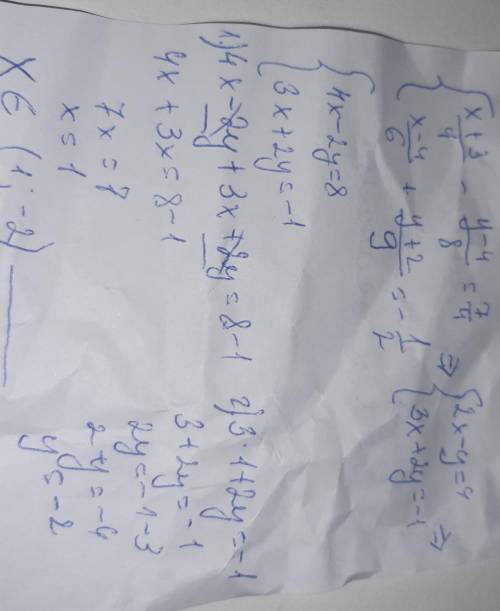 { (x+3)/4 - (y-4)/8 = 7/4
{ (x-4)/6 + (y+2)/9 = -1/2 ⇒ { 2x-y=4
{ 3x+2y=-1 ⇒
{ 4x-2y=8
{ 3x+2y=-1
1) 4x-2y+3x+2y=8-1
4x+3x=8-1
7x=7
x=1
2) 3·1+2y=-1
3+2y=-1
2y=-1-3
2y=-4
y=-2
X∈ (1;-2)